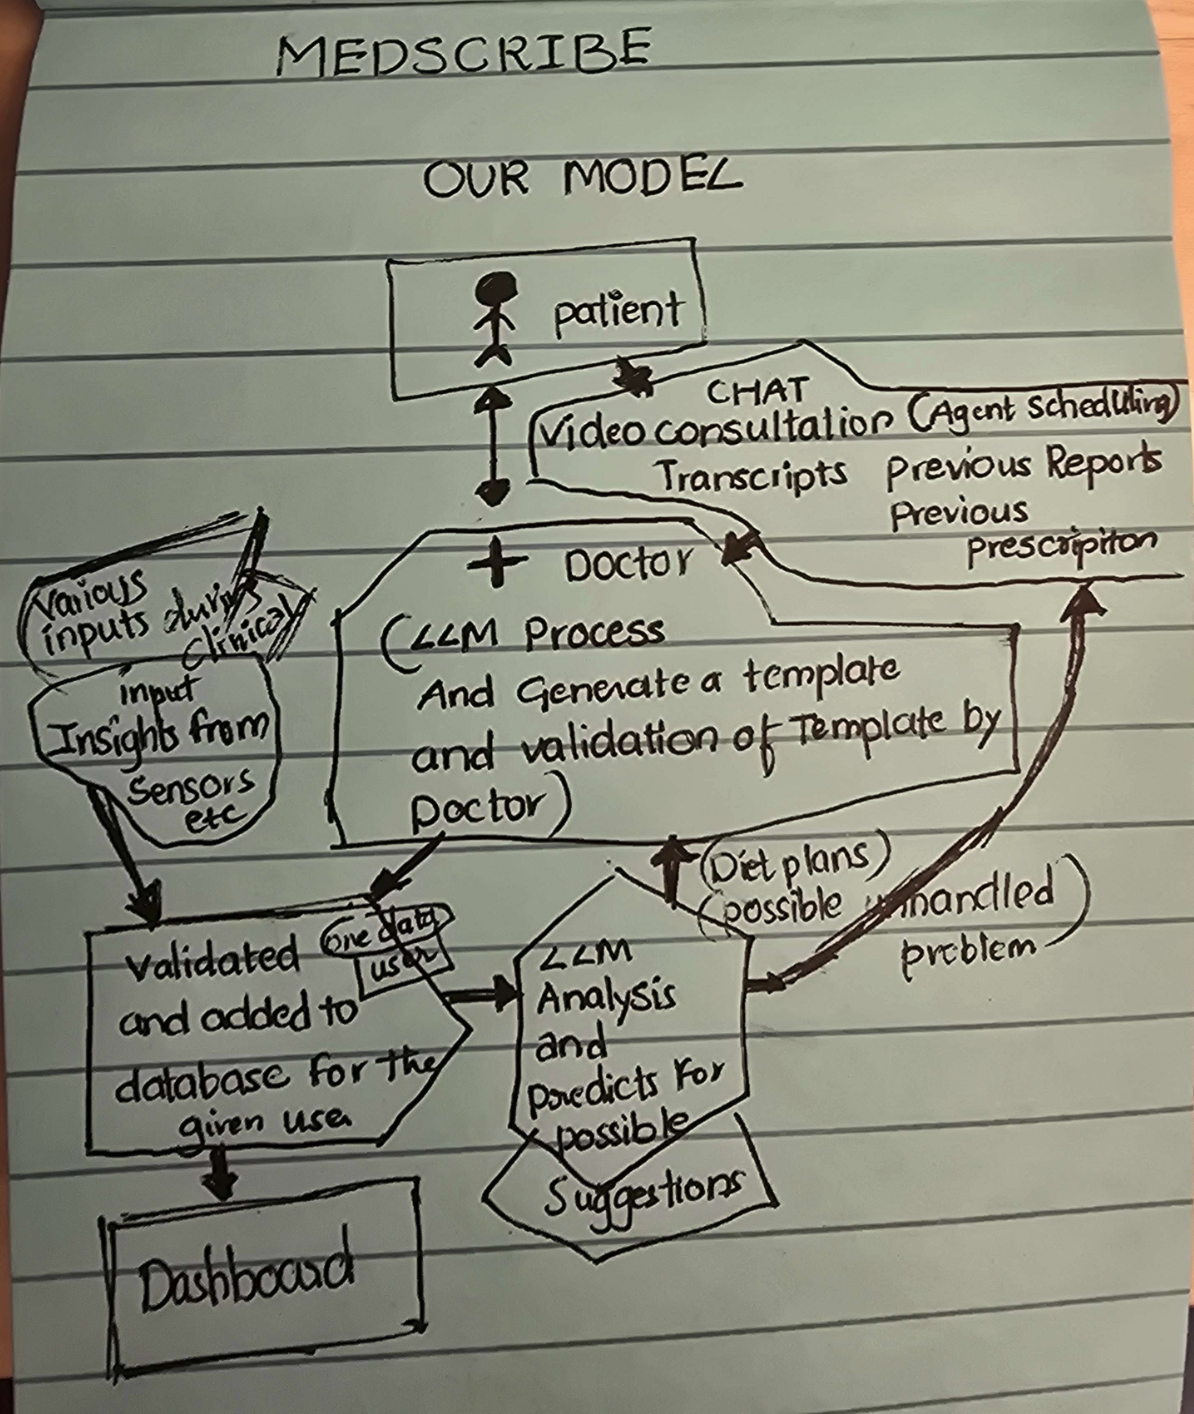 MEDSCRIBE
OUR MODEL
patient
CHAT
Video consultation (Agent scheduling)
Transcripts Previous Reports
Previous
Prescripiton
+ DOCTOR
(LLM Process
And Generate a template
and validation of Template by
Doctor)
Various
inputs during
clinical
input
Insights from
Sensors
etc
(Diet plans)
(possible unhandled
problem)
Validated
and added to
database for the
given user
one data
user
LLM
Analysis
and
predicts for
possible
Suggestions
Dashboard